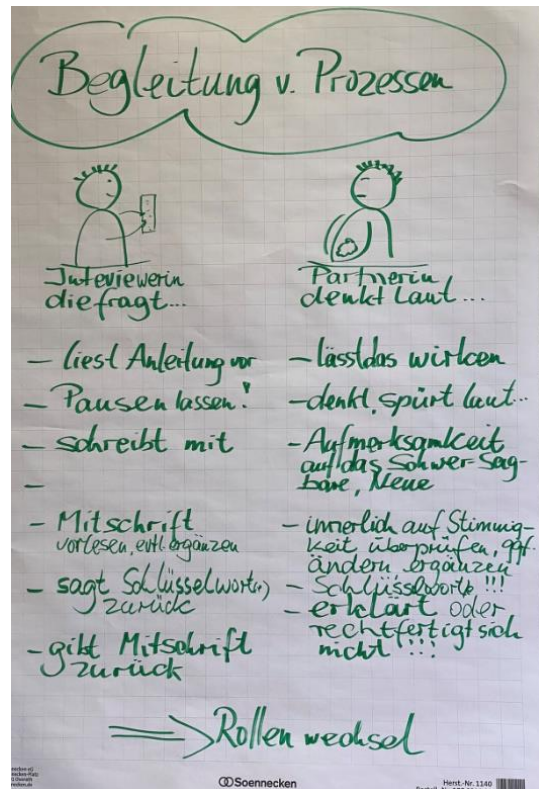 Begleitung v. Prozessen
Inteviewerin
die fragt...
- liest Anleitung vor
- Pausen lassen!
- schreibt mit
-
- Mitschrift
vorlesen, evtl. ergänzen
- sagt Schlüsselwort(e)
zurück
- gibt Mitschrift
zurück
Partnerin
denkt laut...
- lässt das wirken
- denkt, spürt laut...
- Aufmerksamkeit
auf das Schwer-Sag-
bare, Neue
- innerlich auf Stimmig-
keit überprüfen, ggf.
ändern, ergänzen
- Schlüsselworte!!!
- erklärt oder
rechtfertigt sich
nicht!!!
=> Rollenwechsel
Soennecken
Herst.-Nr. 1140